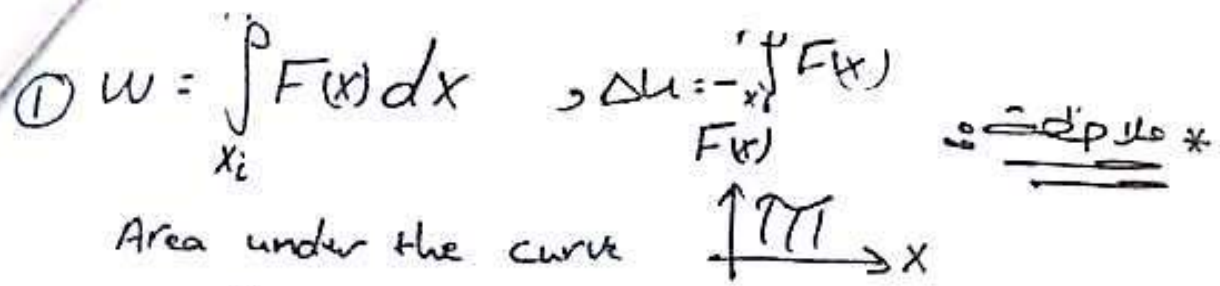 * ملاحظات :
① W = ∫ₓᵢ F(x) dx , Δu = -∫ₓᵢ F(x)
Area under the curve F(x) x